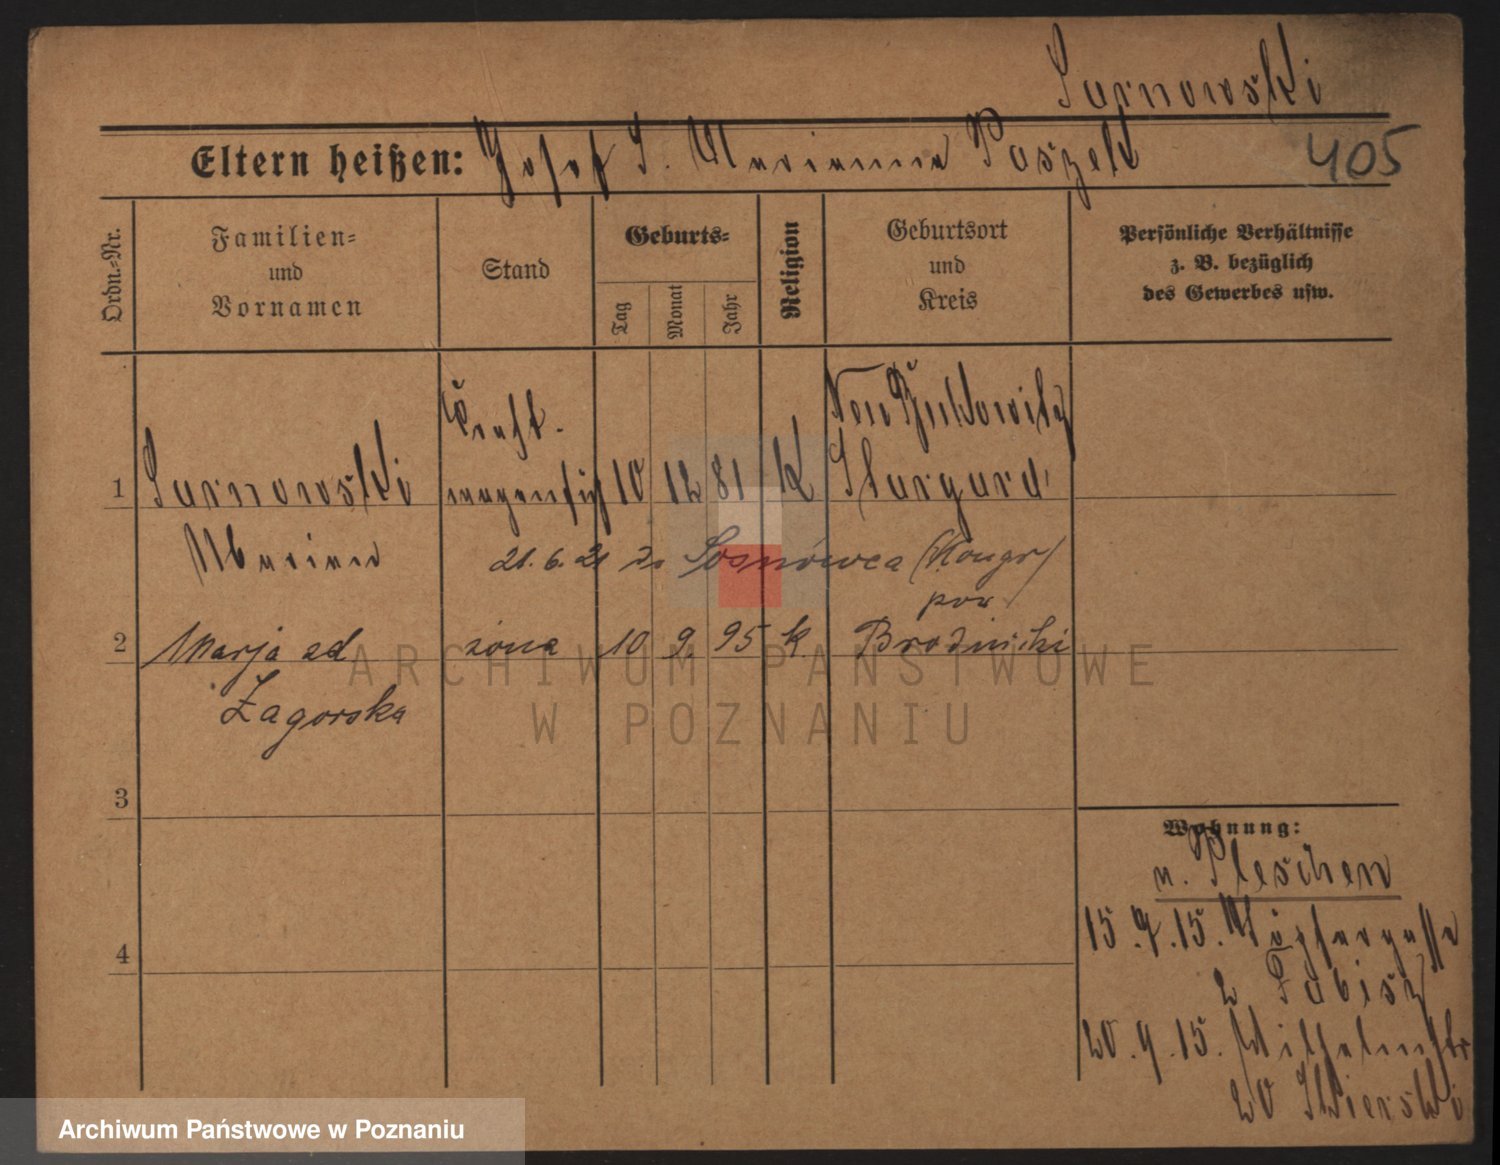 Sarnowski
Eltern heißen: Josef S. Marianna Paszek
405
Ordn.-Nr.
Familien-
und
Vornamen
Stand
Geburts-
Tag
Monat
Jahr
Religion
Geburtsort
und
Kreis
Persönliche Verhältnisse
z. B. bezüglich
des Gewerbes usw.
1
Sarnowski
Marian
Kraft-
10 12 81 K
Neu
Stargard
21. 6. 21 do Sosnowca (Kongr)
2
Marja zd
Zagorska
żona
10 9. 95 k.
pow
Brodnicki
3
4
Wohnung:
n. Pleschen
15.9.15.
2
20.9.15. Wilhelmstr
20
ARCHIWUM PAŃSTWOWE
W POZNANIU
Archiwum Państwowe w Poznaniu